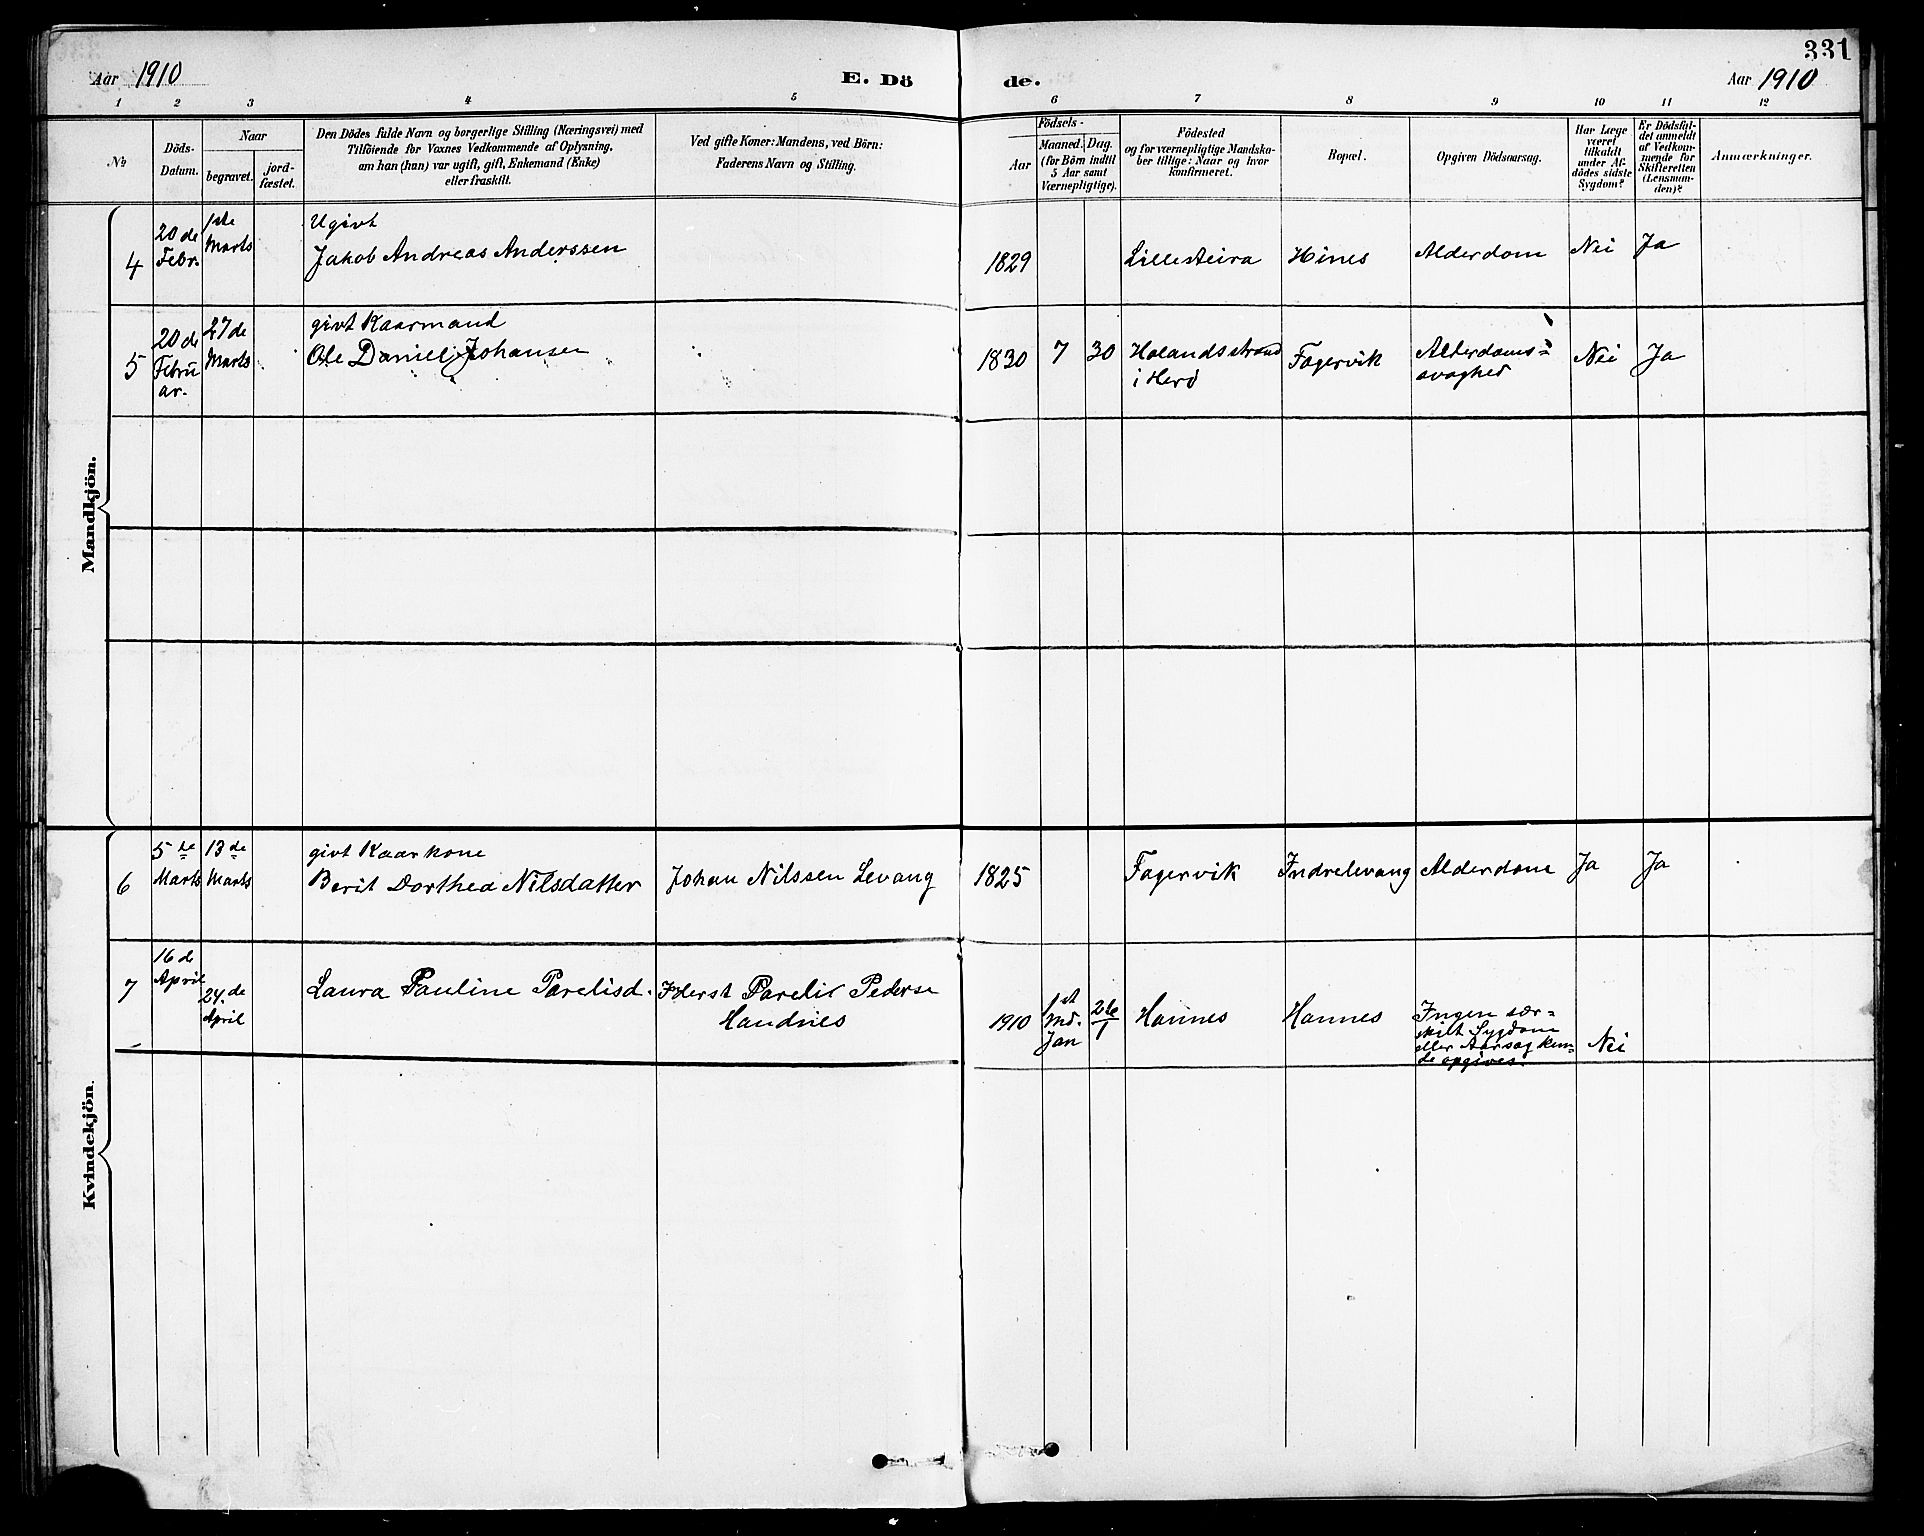 331
Aar 1910
E. Dö
de.
Aar 1910
1 2 3 4 5 6 7 8 9 10 11 12
№
Döds-
Datum.
Naar
begravet.
jord-
fæstet.
Den Dödes fulde Navn og borgerlige Stilling (Næringsvei) med
Tilföiende for Voxnes Vedkommende af Oplysning,
om han (hun) var ugift, gift, Enkemand (Enke)
eller fraskilt.
Ved gifte Koner: Mandens, ved Börn:
Faderens Navn og Stilling.
Födsels-
Aar
Maaned.
Dag.
(for Börn indtil
5 Aar samt
Værnepligtige).
Födested
og for værnepligtige Mandska-
ber tillige: Naar og hvor
konfirmeret.
Bopæl.
Opgiven Dödsaarsag.
Har Læge
været
tilkaldt
under Af-
dödes sidste
Sygdom?
Er Dödsfal-
det anmeldt
af Vedkom-
mende for
Skifteretten
(Lensman-
den)?
Anmærkninger.
Mandkjön.
4
20 de
Febr.
1ste
Marts
Ugivt
Jakob Andreas Anderssen
1829
Lillesteira
Hines
Alderdom
Nei
Ja
5
20 de
Febru
ar.
27 de
Marts
givt Kaarmand
Ole Daniel Johansen
1830
7
30
Holandsstrand
i Herø
Fagervik
Alderdoms=
svaghed
Nei
Ja
Kvindekjön.
6
5 te
Marts
13 de
Marts
givt Kaarkone
Berit Dorthea Nilsdatter
Johan Nilssen Levang
1825
Fagervik
Indrelevang
Alderdom
Ja
Ja
7
16 de
April
24. de
April
Laura Pauline Parelisd.
Pareli Pederse
Handnes
1910
1st
Md.
Jan
26
1
Hannes
Hannes
Ingen sær=
skilt Sygdom
eller Aarsag kun=
de opgives.
Nei